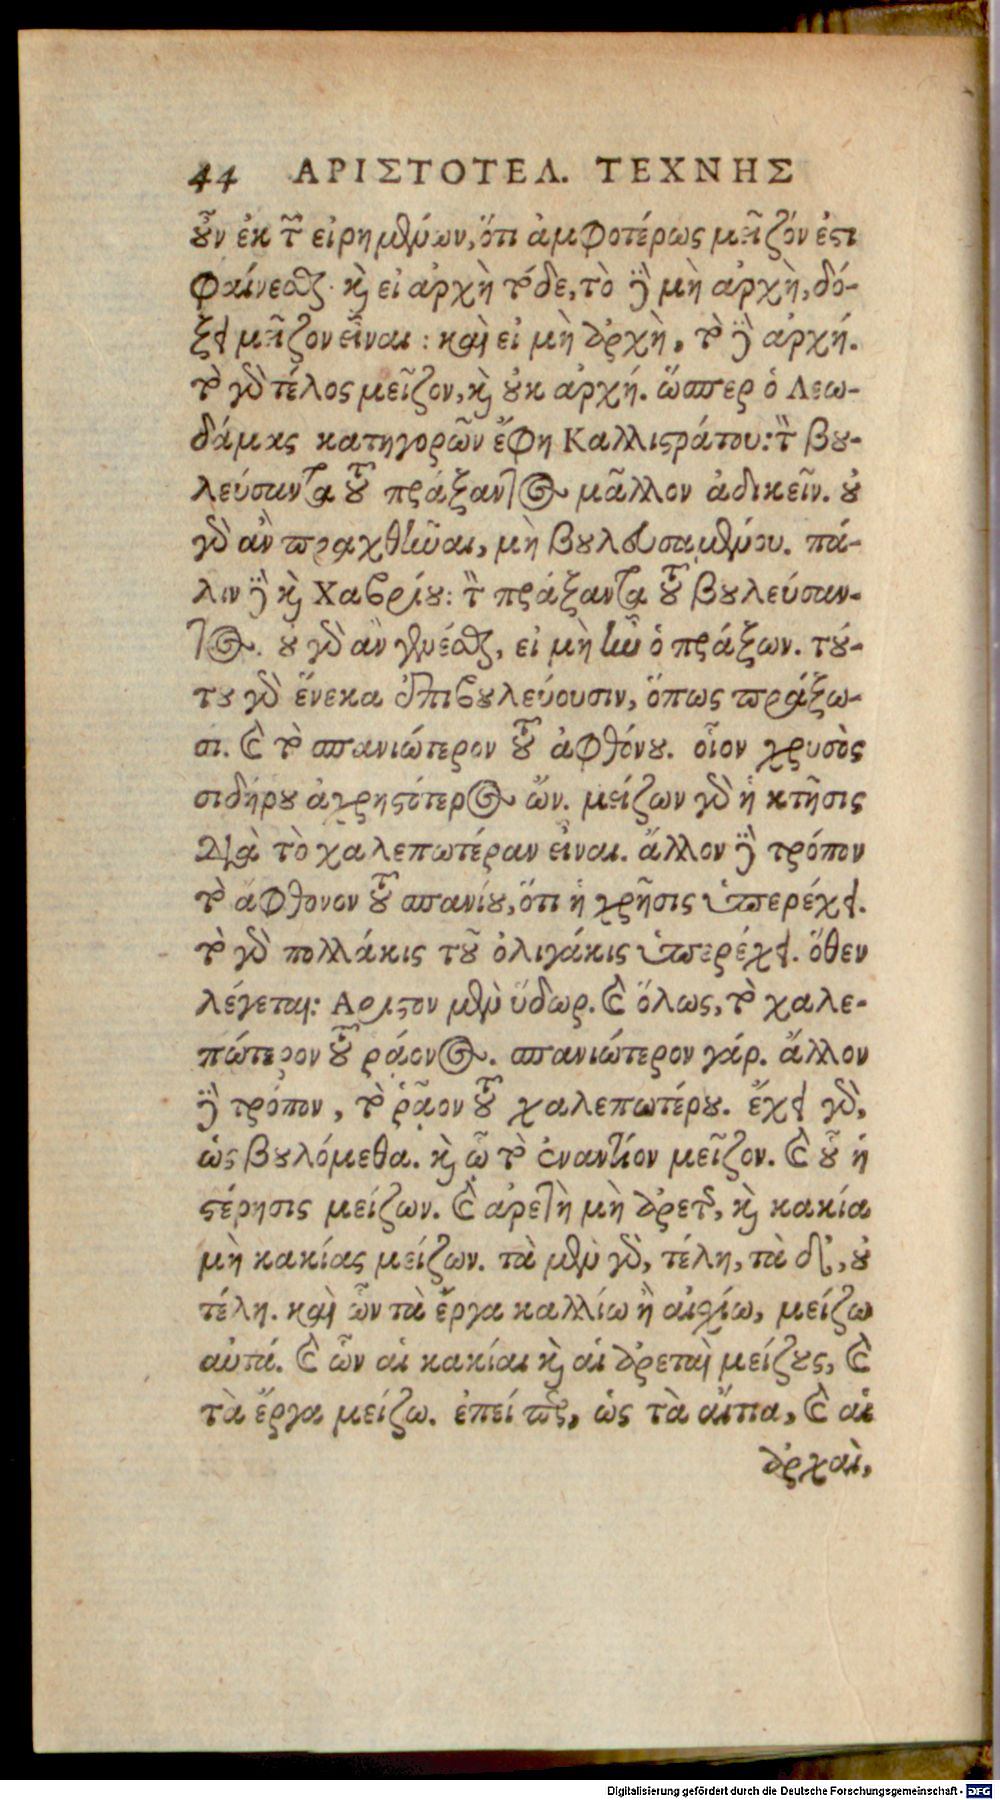 44 ΑΡΙΣΤΟΤΕΛ. ΤΕΧΝΗΣ
οὖν ἐκ τῶν εἰρημένων, ὅτι ἀμφοτέρως μεῖζόν ἐστι
φαίνεσθαι. καὶ εἰ ἀρχὴ τόδε, τὸ δὲ μὴ ἀρχὴ, δό-
ξει μεῖζον εἶναι: καὶ εἰ μὴ ἀρχὴ, τὸ δὲ ἀρχή.
τὸ γὰρ τέλος μεῖζον, καὶ οὐκ ἀρχή. ὥσπερ ὁ Λεω-
δάμας κατηγορῶν ἔφη Καλλιστράτου: τὸν βου-
λεύσαντα τοῦ πράξαντος μᾶλλον ἀδικεῖν. οὐ
γὰρ ἂν πραχθῆναι, μὴ βουλευσαμένου. πά-
λιν δὲ καὶ Χαβρίου: τὸν πράξαντα τοῦ βουλεύσαν-
τος. οὐ γὰρ ἂν γενέσθαι, εἰ μὴ ἦν ὁ πράξων. τού-
του γὰρ ἕνεκα ἐπιβουλεύουσιν, ὅπως πράξω-
σι. καὶ τὸ σπανιώτερον τοῦ ἀφθόνου. οἷον χρυσὸς
σιδήρου ἀχρηστότερος ὤν. μείζων γὰρ ἡ κτῆσις
διὰ τὸ χαλεπωτέραν εἶναι. ἄλλον δὲ τρόπον
τὸ ἄφθονον τοῦ σπανίου, ὅτι ἡ χρῆσις ὑπερέχει.
τὸ γὰρ πολλάκις τοῦ ὀλιγάκις ὑπερέχει. ὅθεν
λέγεται: Αριστον μὲν ὕδωρ. καὶ ὅλως, τὸ χαλε-
πώτερον τοῦ ῥᾴονος. σπανιώτερον γάρ. ἄλλον
δὲ τρόπον, τὸ ῥᾷον τοῦ χαλεπωτέρου. ἔχει γὰρ,
ὡς βουλόμεθα. καὶ ᾧ τὸ ἐναντίον μεῖζον. καὶ οὗ ἡ
στέρησις μείζων. καὶ ἀρετὴ μὴ ἀρετῆς, καὶ κακία
μὴ κακίας μείζων. τὰ μὲν γὰρ, τέλη, τὰ δ', οὐ
τέλη. καὶ ὧν τὰ ἔργα καλλίω ἢ αἰσχίω, μείζω
αὐτά. καὶ ὧν αἱ κακίαι καὶ αἱ ἀρεταὶ μείζους, καὶ
τὰ ἔργα μείζω. ἐπείπερ, ὡς τὰ αἴτια, καὶ αἱ
ἀρχαὶ,
Digitalisierung gefördert durch die Deutsche Forschungsgemeinschaft - DFG